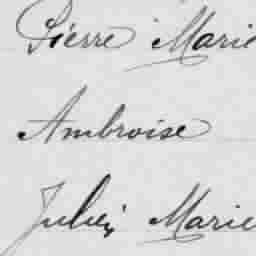 Pierre Marie
Ambroise
Julien Marie